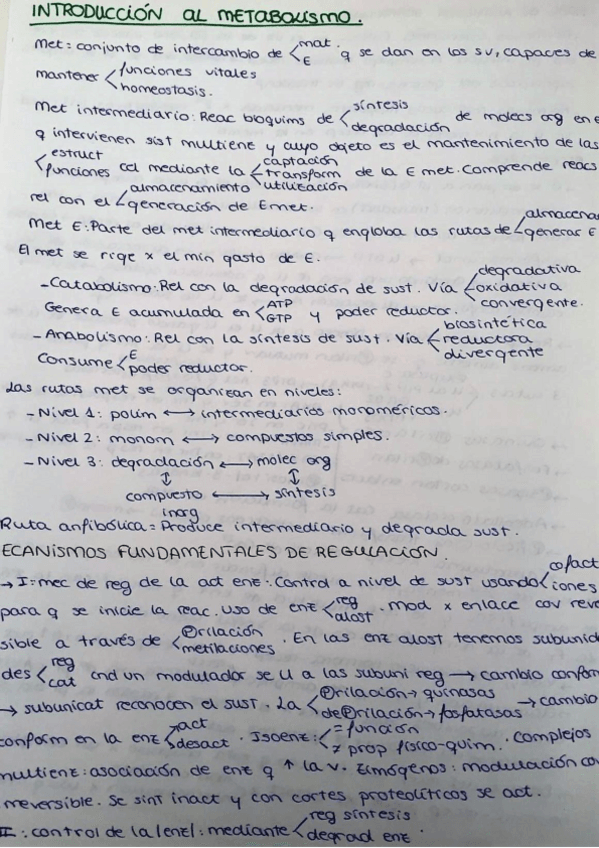 INTRODUCCIÓN AL METABOLISMO.
Met: conjunto de intercambio de < mat. E q se dan en los sv, capaces de
mantener < funciones vitales homeostasis.
Met intermediario: Reac bioquims de < síntesis degradación de molecs org en
q intervienen sist multienz y cuyo objeto es el mantenimiento de las
< estruct funciones cel mediante la < captación transform utilización de la E met. Comprende reacs
rel con el < almacenamiento generación de E met.
Met E: Parte del met intermediario q engloba las rutas de < almacena generar E
El met se rige x el mín gasto de E.
- Catabolismo: Rel con la degradación de sust. Vía < degradativa oxidativa convergente.
Genera E acumulada en < ATP GTP y poder reductor.
- Anabolismo: Rel con la síntesis de sust. Vía < biosintética reductora divergente
Consume < E poder reductor.
Las rutas met se organizan en niveles:
- Nivel 1: polím ⟷ intermediarios monoméricos.
- Nivel 2: monom ⟷ compuestos simples.
- Nivel 3: degradación ⟷ molec org
↕ ↕
compuesto ⟷ síntesis
inorg
Ruta anfibólica = Produce intermediario y degrada sust.
ECANISMOS FUNDAMENTALES DE REGULACIÓN.
→ I: mec de reg de la act enz: Control a nivel de sust usando < cofact iones
para q se inicie la reac. Uso de enz < reg alost. mod x enlace cov rever
sible a través de < Ⓟrilación metilaciones. En las enz alost tenemos subunid
des < reg cat cnd un modulador se U a las subuni reg → cambio conform
→ subunicat reconocen el sust. La < Ⓟrilación → quinasas deⓅrilación → fosfatasas → cambio
conform en la enz < act desact. Isoenz: < = función ≠ prop físico-quim. Complejos
multienz: asociación de enz q ↑ la v. Zimógenos: modulación cov
irreversible. Se sint inact y con cortes proteolíticos se act.
II: control de la [enz]: mediante < reg síntesis degrad enz.